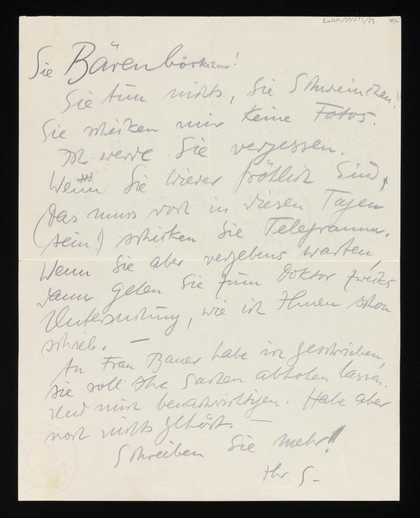 Sie Bärenbärtchen!
Sie tun nichts, Sie Schweinchen!
Sie schicken mir keine Fotos.
Ich werde Sie vergessen.
Wenn Sie wieder fröhlich sind,
(das muss doch in diesen Tagen
sein!) schicken Sie Telegramm.
Wenn Sie aber vergebens warten,
dann gehen Sie zum Doktor zwecks
Untersuchung, wie ich Ihnen schon
schrieb. —
An Frau Bauer habe ich geschrieben,
sie soll Ihre Sachen abholen lassen.
Und mich benachrichtigen. Habe aber
noch nichts gehört. —
Schreiben Sie mehr!
Ihr S-